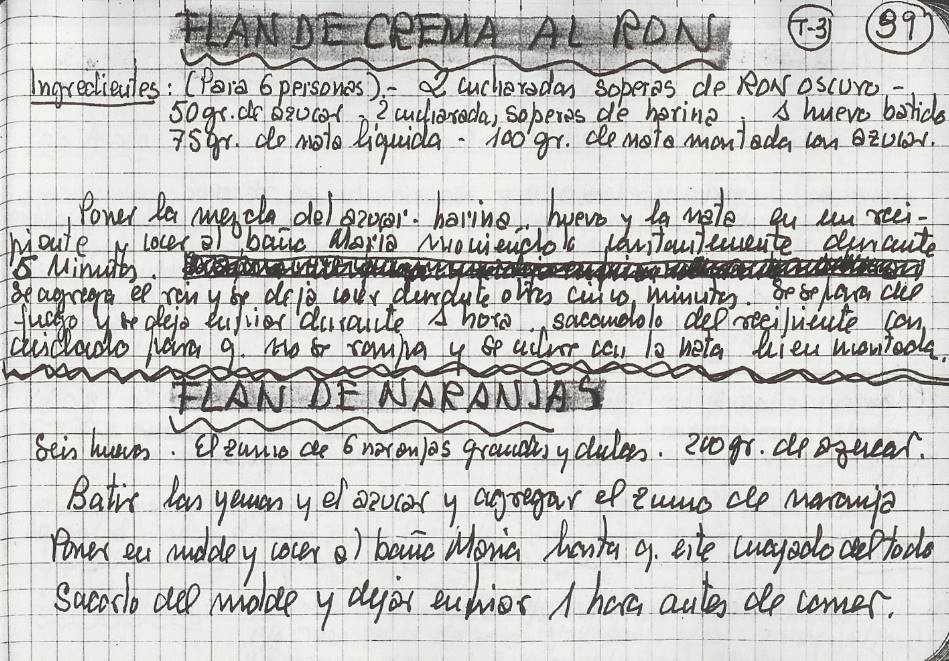 FLAN DE CREMA AL RON T-3 39
Ingredientes: (Para 6 personas).- 2 cucharadas soperas de RON OSCURO -
50 gr. de azucar - 2 cucharadas soperas de harina . 1 huevo batido
75 gr. de nata liquida - 100 gr. de nata montada con azucar.
Poner la mezcla del azucar. harina.. huevo y la nata en un reci-
piente y cocer al baño Maria moviendolo constantemente durante
5 Minutos.
Se agrega el ron y se deja cocer durante otros cinco minutos. Se separa del
fuego y se deja enfriar durante 1 hora . sacandolo del recipiente con
cuidado para q. no se rompa y se cubre con la nata bien montada.
FLAN DE NARANJAS
Seis huevos . El zumo de 6 naranjas grandes y dulces . 200 gr. de azucar.
Batir las yemas y el azucar y agregar el zumo de naranja
Poner en molde y cocer al baño Maria hasta q. este cuajado del todo
Sacarlo del molde y dejar enfriar 1 hora antes de comer.